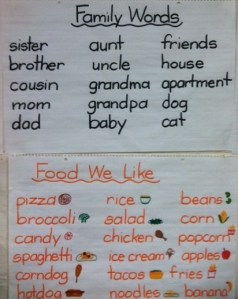 Family Words
sister aunt friends
brother uncle house
cousin grandma apartment
mom grandpa dog
dad baby cat
Food We Like
pizza rice beans
broccoli salad corn
candy chicken popcorn
spaghetti ice cream apples
corndog tacos fries
hotdog noodles banana